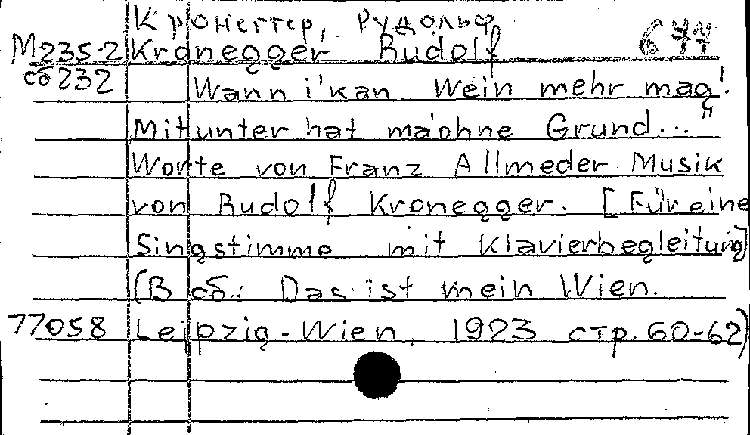 Кронеггер, Рудольф.
М235-2 Kronegger Rudolf 677
сб232 Wann i'kan Wein mehr mag!
Mitunter hat ma'ohne Grund..."
Worte von Franz Allmeder Musik
von Rudolf Kronegger. [Für eine
Singstimme mit Klavierbegleitung]
(В сб.: Das ist mein Wien.
77058 Leipzig-Wien, 1923 стр. 60-62)